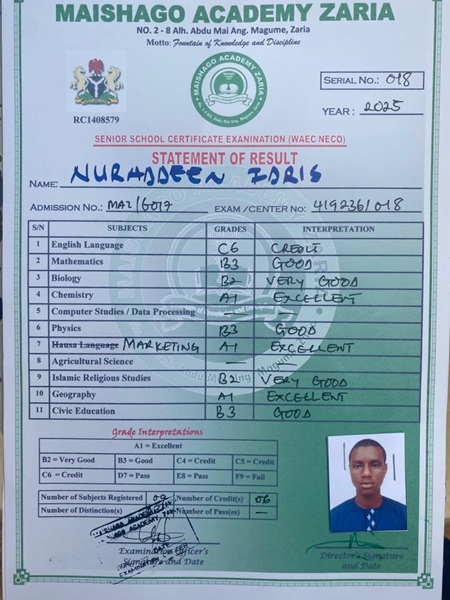 MAISHAGO ACADEMY ZARIA
NO. 2 - 8 Alh. Abdu Mai Ang. Magume, Zaria
Motto: Fountain of Knowledge and Discipline
MAISHAGO ACADEMY ZARIA
RC1408579
SERIAL NO.: 018
YEAR: 2025
SENIOR SCHOOL CERTIFICATE EXAMINATION (WAEC NECO)
STATEMENT OF RESULT
NAME: NURADDEEN IDRIS
ADMISSION NO.: MAZ/G017 EXAM /CENTER NO: 4192361018
S/N SUBJECTS GRADES INTERPRETATION
1 English Language C6 CREDIT
2 Mathematics B3 GOOD
3 Biology B2 VERY GOOD
4 Chemistry A1 EXCELLENT
5 Computer Studies / Data Processing — —
6 Physics B3 GOOD
7 Hausa Language MARKETING A1 EXCELLENT
8 Agricultural Science
9 Islamic Religious Studies B2 VERY GOOD
10 Geography A1 EXCELLENT
11 Civic Education B3 GOOD
Grade Interpretations
A1 = Excellent
B2 = Very Good B3 = Good C4 = Credit C5 = Credit
C6 = Credit D7 = Pass E8 = Pass F9 = Fail
Number of Subjects Registered 09 Number of Credit(s) 06
Number of Distinction(s) Number of Pass(es) —
Examination Officer's
Signature and Date
Director's Signature
and Date